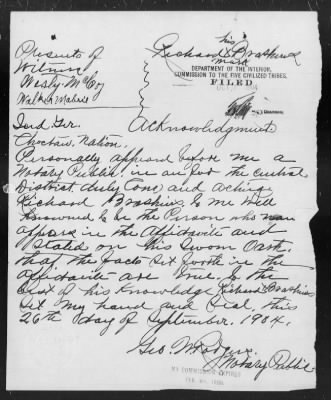 Presents of
Witness
Wesly McCoy
his
Richard Brashires
mark
DEPARTMENT OF THE INTERIOR,
COMMISSION TO THE FIVE CIVILIZED TRIBES.
FILED
Ind Ter.
Acknowledgment
Choctaw Nation.
Personally appeard before me a
Notary Public in an for the central
District duly Com, and acting
Richard to me well
Knowned to be the Person who
appears in the Affidavite and
Stated on his Sworn Oath.
that the facts Set forth in the
Affidavite are true to the
best of his Knowledge Richard Brashires
Set my hand and Seal this
26th day of September. 1904.
Geo. W Rodgers.
Notary Public
MY COMMISSION EXPIRES